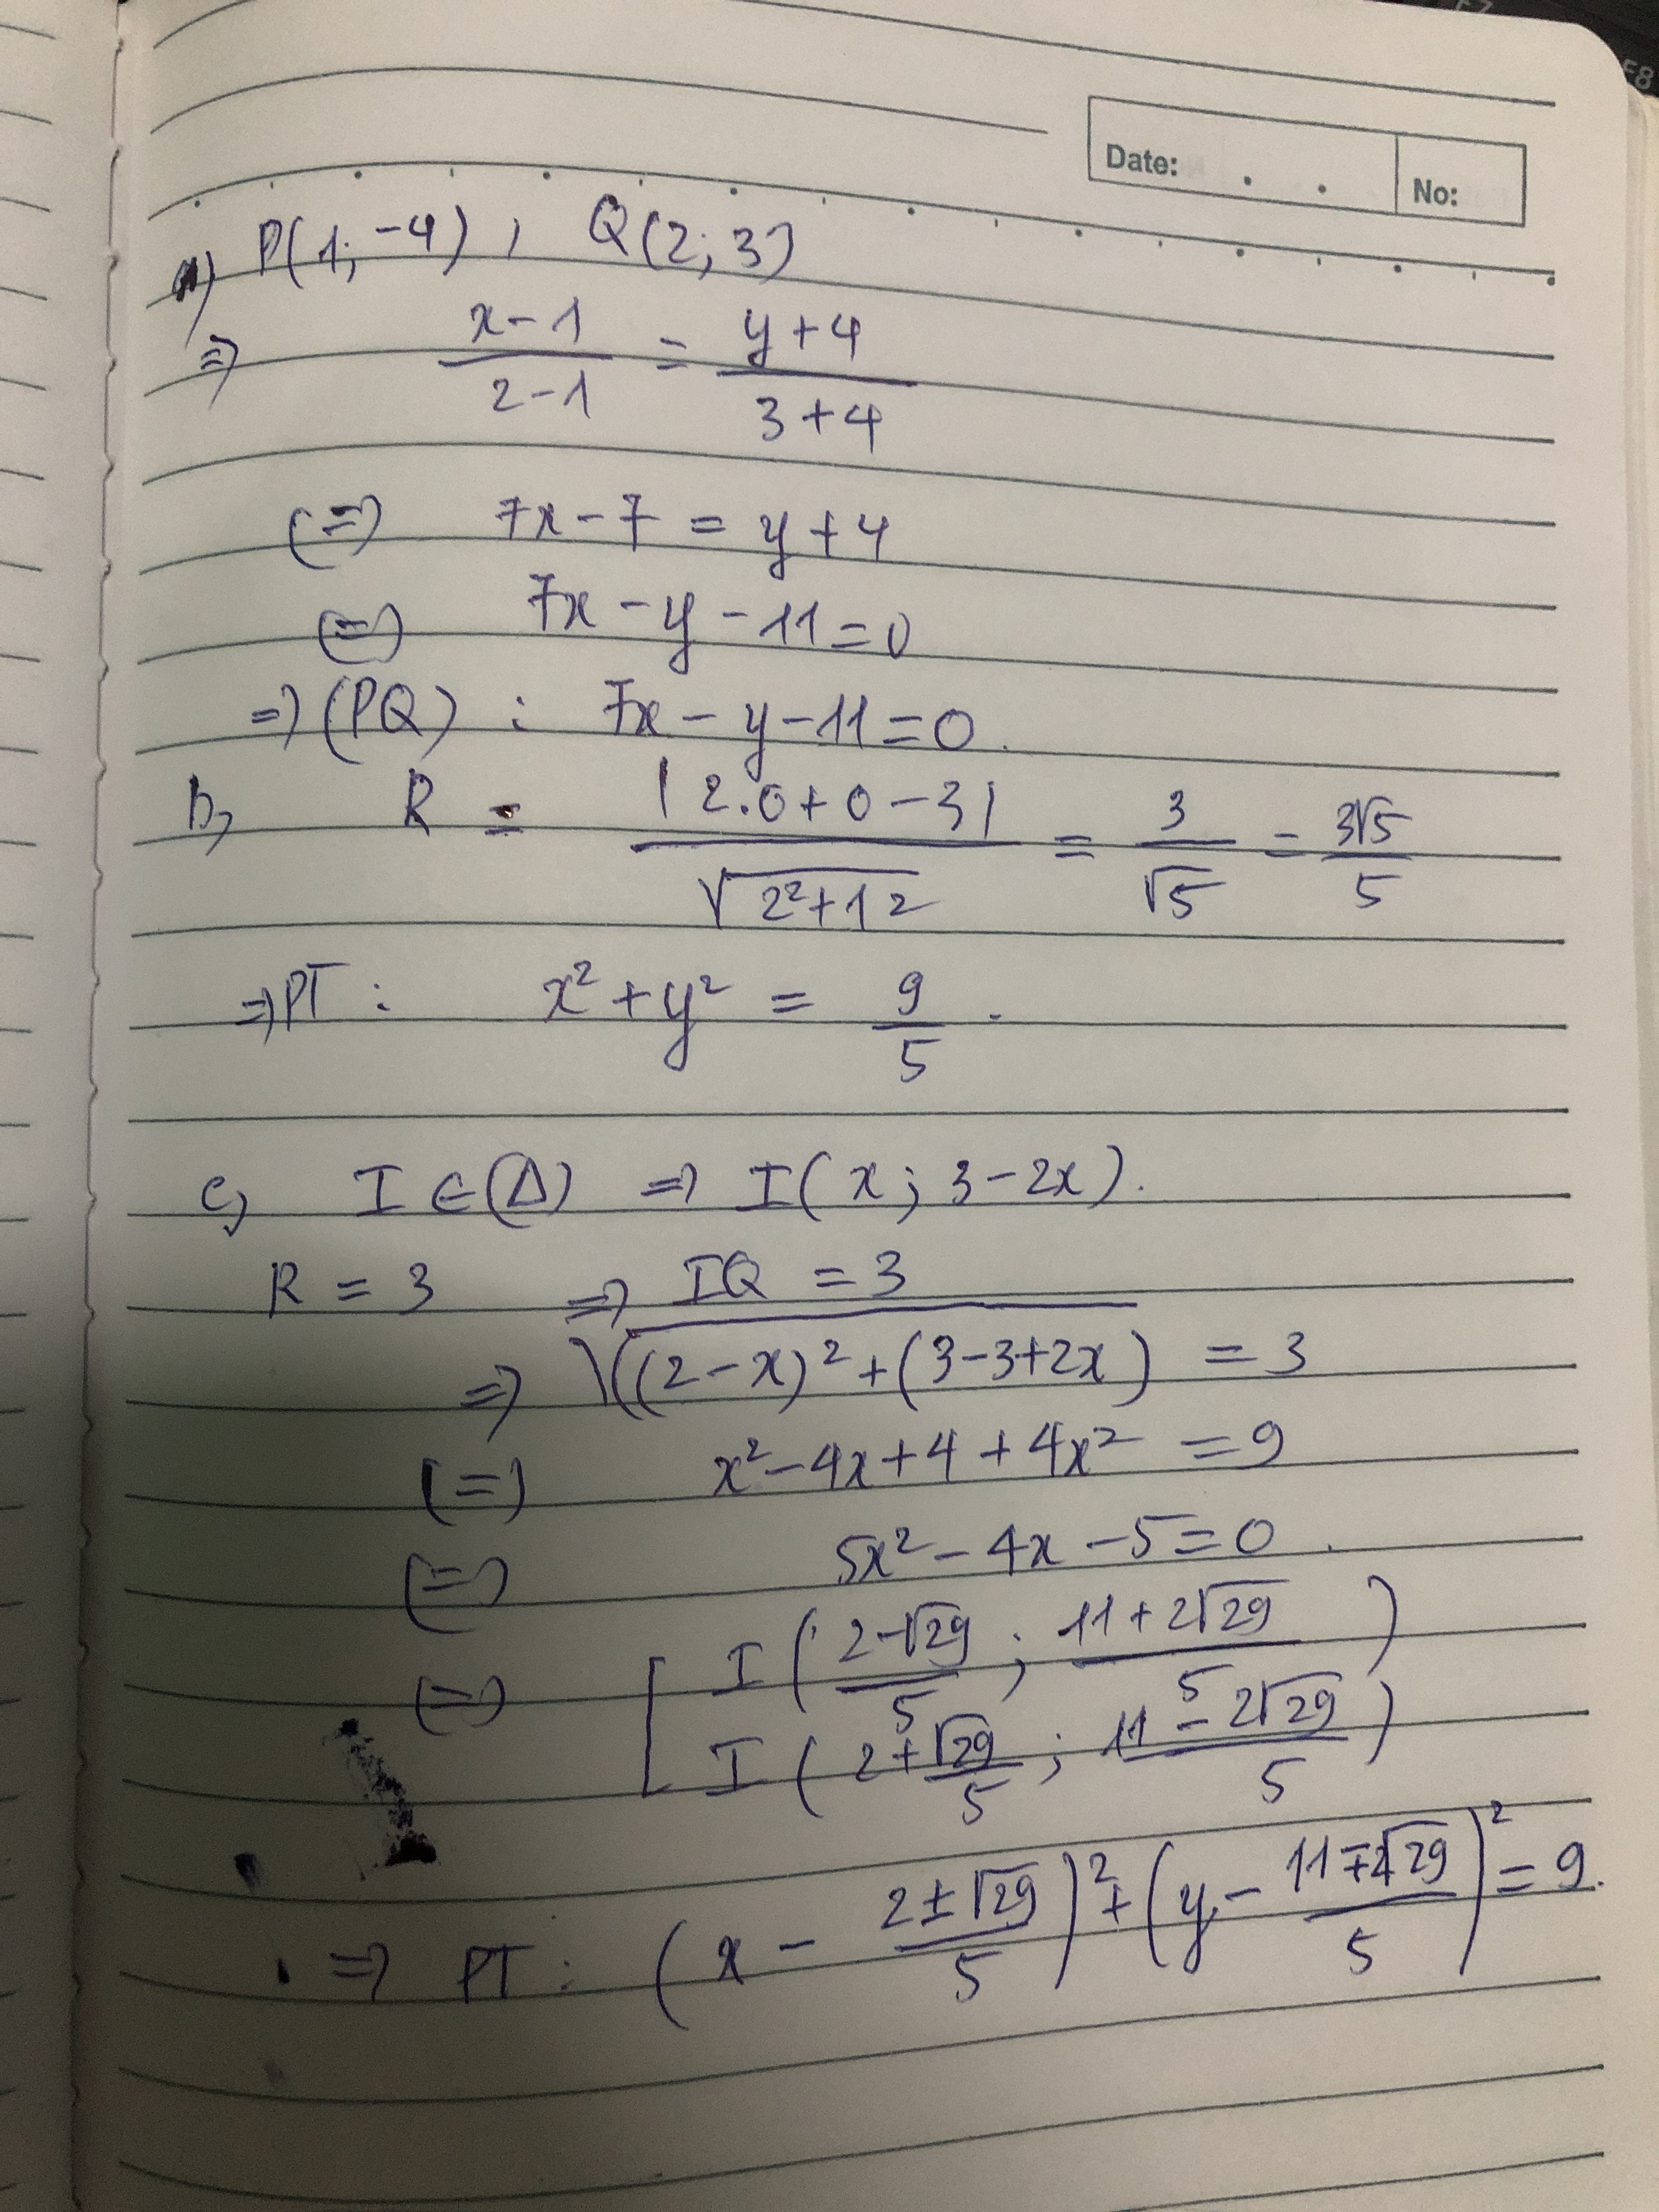 F7
F8
Date:
No:
a) P(1; -4), Q(2; 3)
=> (x-1)/(2-1) = (y+4)/(3+4)
(=) 7x - 7 = y + 4
(=) 7x - y - 11 = 0
=> (PQ) : 7x - y - 11 = 0.
b, R = |2.0 + 0 - 3| / √(2² + 1²) = 3/√5 = 3√5/5
=> PT : x² + y² = 9/5.
c, I ∈ (Δ) => I(x; 3 - 2x).
R = 3 => IQ = 3
=> √((2 - x)² + (3 - 3 + 2x) = 3
(=) x² - 4x + 4 + 4x² = 9
(=) 5x² - 4x - 5 = 0.
(=) [ I( (2-√29)/5 ; (11+2√29)/5 )
I( (2+√29)/5 ; (11-2√29)/5 )
=> PT : (x - (2±√29)/5)² + (y - (11∓2√29)/5)² = 9.